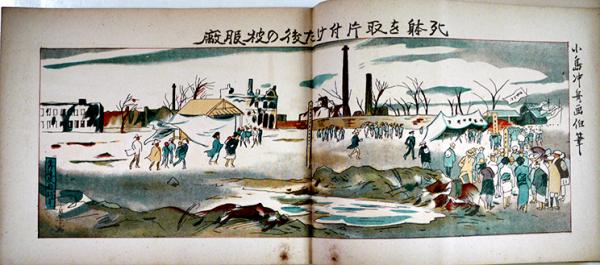 死躰を取片付けた後の被服廠
小島沖舟画伯筆